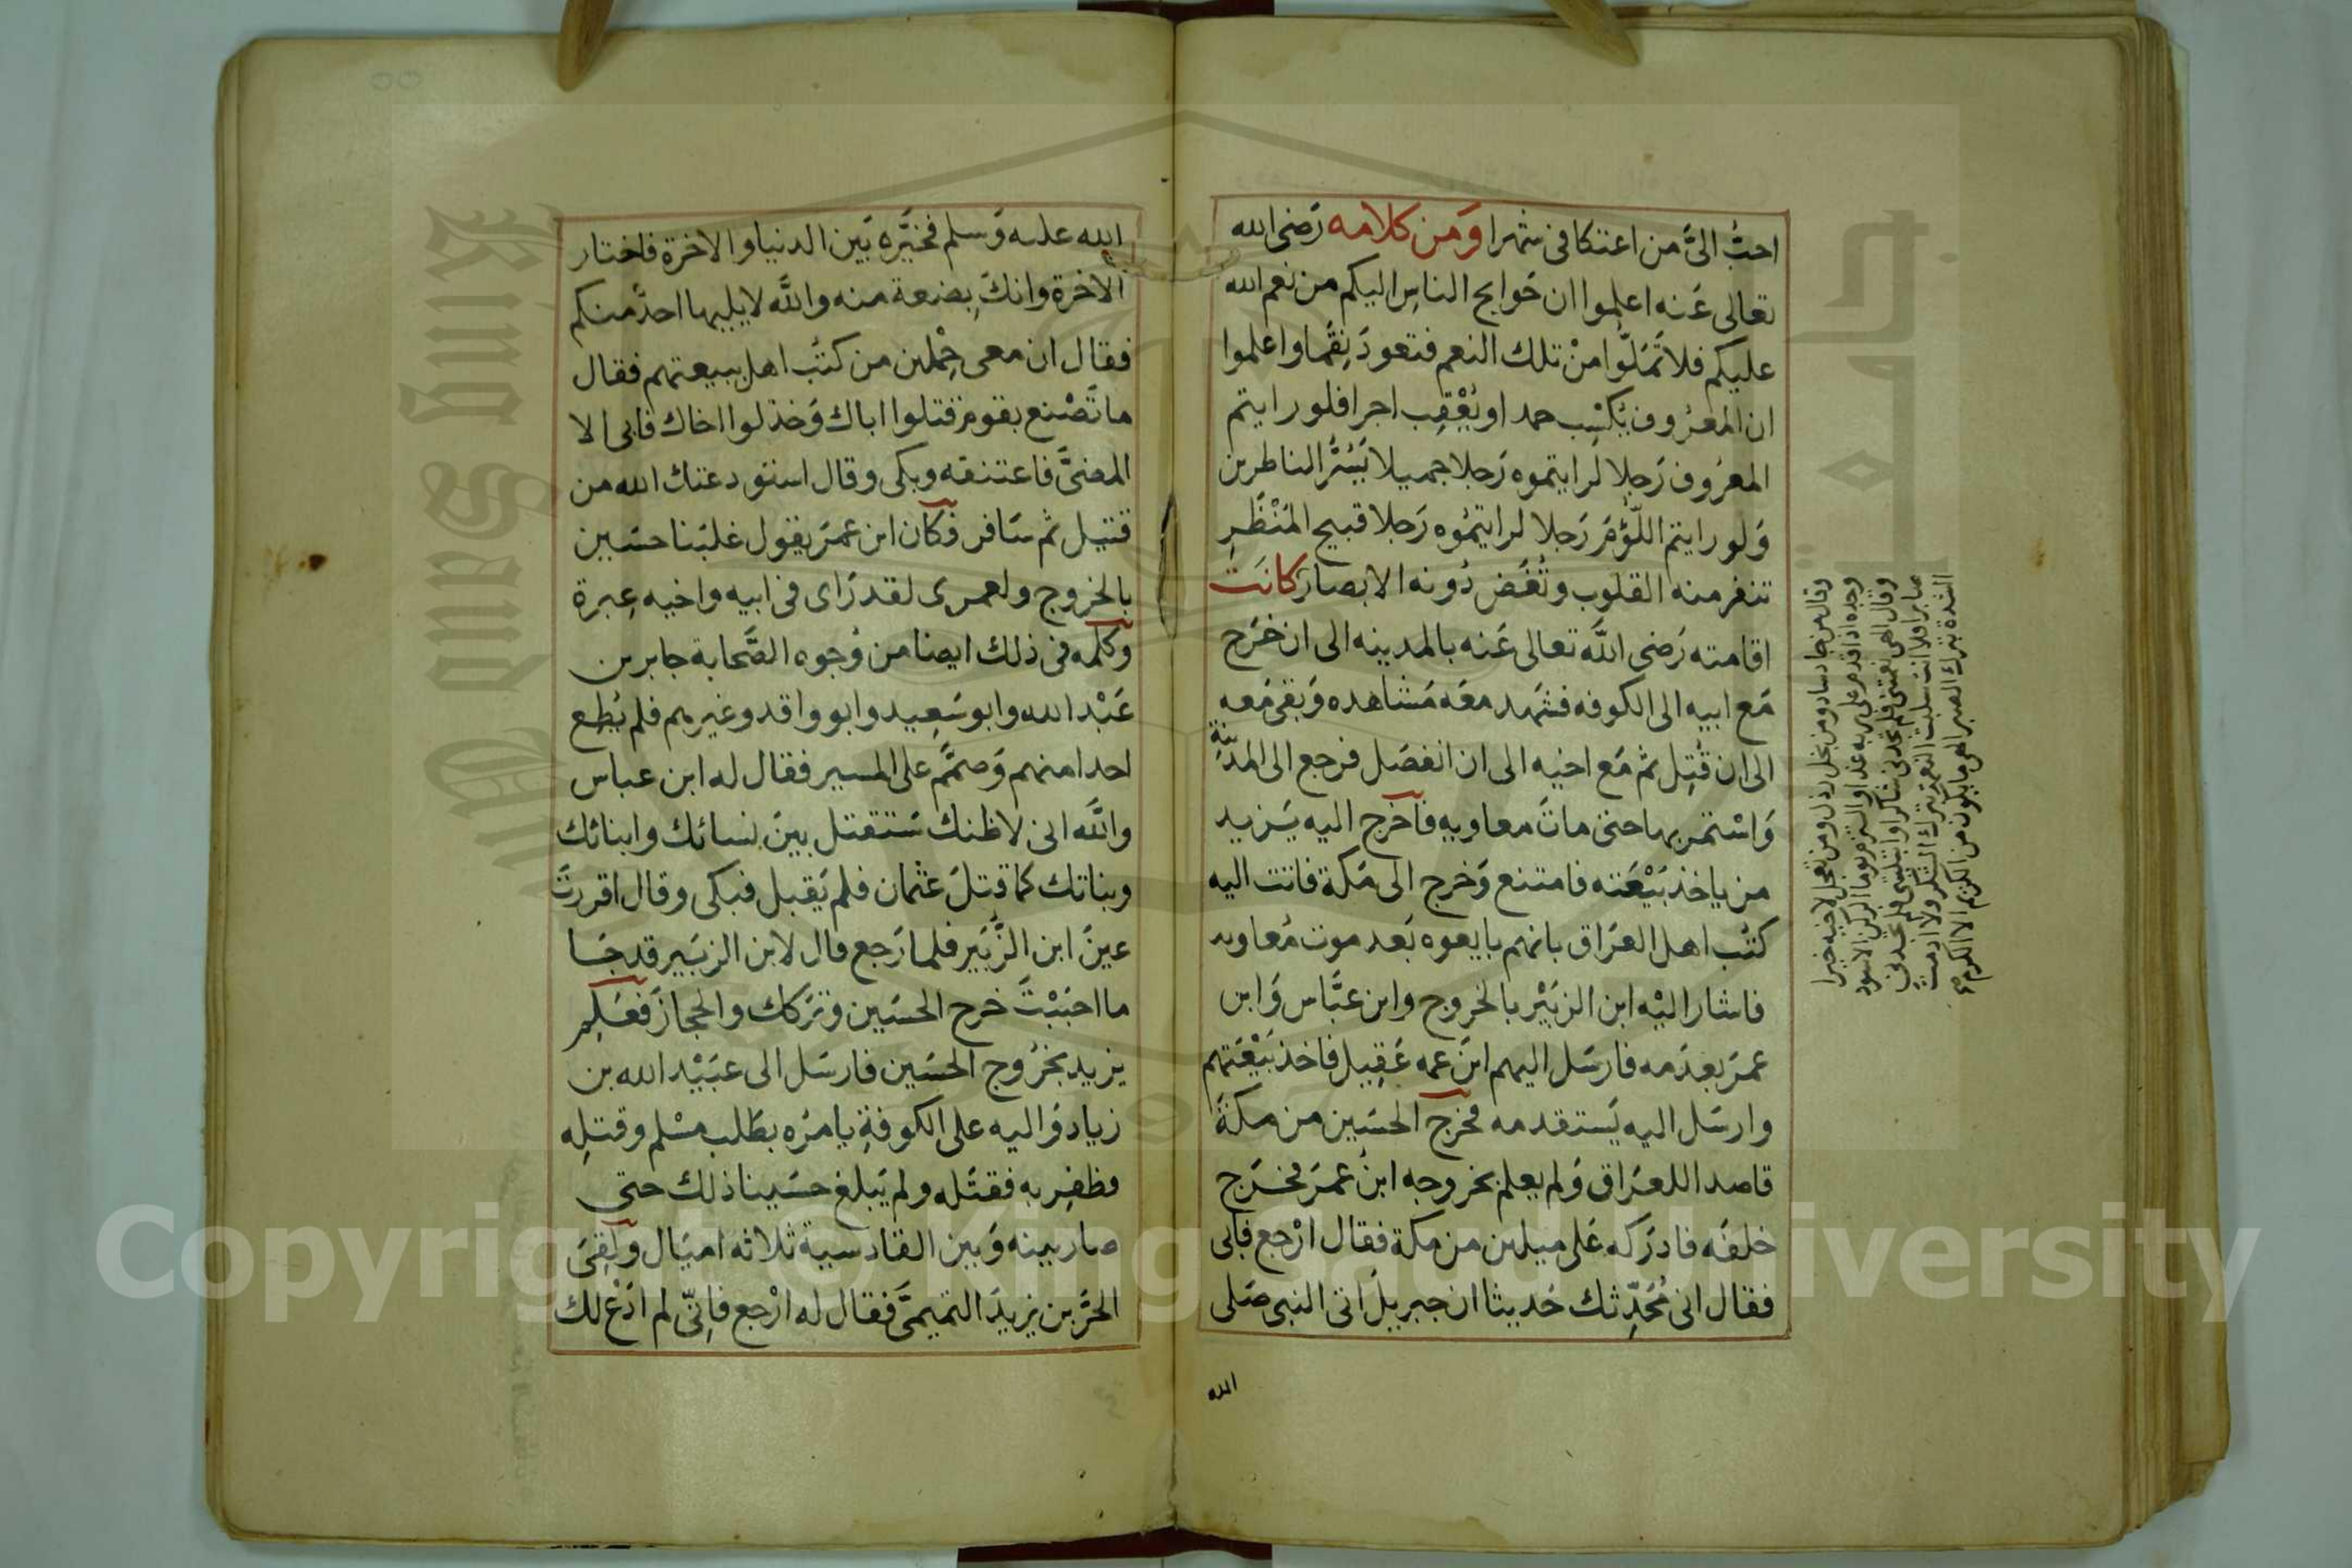 احبُّ الىَّ من اعتكافى شهرا وَمن كلامه رَضى الله
تعالى عَنه اعلموا ان حَوايج الناسِ اليكم من نعم الله
عليكم فلا تَمَلّوا منْ تلك النعم فتعودَ نِقَما واعلموا
ان المَعرُوف يُكسِب حمدا ويُعْقِب اجرا فلو رايتم
المعرُوف رَجلا لَرايتموه رَجلا جميلا يَسُرُّ الناظرين
وَلو رايتم اللُّؤمَ رَجلا لرايتمُوه رَجلا قبيح المَنْظَرِ
تنفر منه القلوب وتُغَض دُونه الابصار كانَت
اقامته رَضى اللَّه تعالى عَنه بالمدينه الى ان خَرَج
مَع ابيه الى الكوفه فشهد معَه مَشاهده وَبقى مَعه
الى ان قُتِل ثم مَع اخيه الى ان انفصَل فرجع الى المَدينَة
وَاسْتمر بها حتى ماتَ معاويه فاَخرج اليه يَزيد
من ياخذ بَيْعَته فامتنع وَخرج الى مَكة فاتت اليه
كتُب اهل العرَاق بانهم بايعوه بَعد موت مُعاويه
فاشار اليْه ابن الزبَيْر بالخروج وابن عبَّاس وَابن
عمرَ بعدَمه فارسَل اليهم ابنَ عمه عَقِيل فاخذ بَيْعَتهم
وارسَل اليه يَستقدمه فخرج الحسَين من مكةَ
قاصدا للعرَاق وَلم يعلم بخروجه ابنُ عمرَ فخرَج
خلفَه فادرَكه عَلى ميلين من مكة فقال ارْجع فابى
فقال انى مُحَدِّثك حَديثا ان جبريلَ اتى النبى صَلى
الله
وقال من جاد ساد ومن بخل رذل ومن تعجل لاخيه خيرا
وجده اذا قدم على ربه غدا والتزم يوما الركن الاسود
وقال الهى نعمتنى فلم تجدنى شاكرا وابتليتنى فلم تجدنى
صابرا فلا انت سلبت النعم بترك الشكر ولا ادمت
الشدة بترك الصبر الهى ما يكون من الكريم الا الكرم
الله عليه وَسلم فخيَّره بَين الدنيا والاخرة فاختار
الاخرة وانكَ بِضعة منه واللَّه لا يليها احدٌ منكم
فقال ان معى حِمْلين من كتُب اهل ببيعتهم فقال
ما تَصْنع بقومٍ قتلوا اباك وَخذلوا اخاك فابى الا
المضىَّ فاعتنقه وبكى وقال استودعتك الله من
قتيل ثم سَافر فكان ابن عمرَ يقول غلبَنا حسَين
بالخروج ولعمرى لقد رَاى فى ابيه واخيه عِبرة
وكلَّمه فى ذلك ايضا من وُجوه الصَّحابة جابر بن
عَبْد الله وابو سَعِيد وابو واقد وغيرهم فلم يُطِع
احدا منهم وَصمَّم على المسير فقال له ابن عباس
واللَّه انى لاظنك سَتقتل بينَ نسائك وابنائك
وبناتك كما قتلَ عثمان فلم يَقبل فبكى وقال اقررتَ
عينَ ابن الزُّبَير فلما رَجع قال لابن الزبَير قد جَا
ما احبَبْتَ خرج الحسَين وتَركك والحجازَ فعَلِمَ
يزيد بخرُوج الحسَين فارسَل الى عبَيْد الله بن
زياد وَاليه على الكوفةِ يامرُه بطَلب مسْلم وقتلِه
فظفِر به فقتَله ولم يَبلغ حسَينا ذلك حتى
صار بينه وَبين القادسية ثلاثه اميَال ولَقِىَ
الحُرَّ بن يزيدَ التميمىَّ فقال له ارْجع فاِنّى لم ادَعْ لك
Copyright © King Saud University
King Saud University